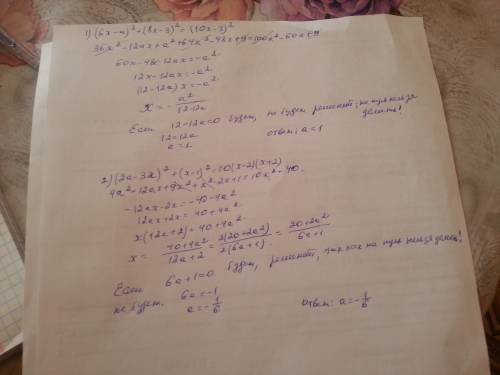 1) (6x-a)²+(8x-3)²=(10x-3)²
36x²-12ax+a²+64x²-48x+9=100x²-60x+9
60x-48x-12ax=-a²
12x-12ax=-a²
(12-12a)x=-a²
x=-a²/(12-12a)
Если 12-12a=0 будем, не будем решений, на нуль нельзя делить!
12=12a
a=1
ответ: a=1
2) (2a-3x)²+(x-1)²=10(x-2)(x+2)
4a²-12ax+9x²+x²-2x+1=10x²-40
-12ax-2x=-40-4a²
12ax+2x=40+4a²
x(12a+2)=40+4a²
x=(40+4a²)/(12a+2)=2(20+2a²)/2(6a+1)=(20+2a²)/(6a+1)
Если 6a+1=0 будем, решений, так как на нуль нельзя делить!
не будем. 6a=-1
a=-1/6
ответ: a=-1/6